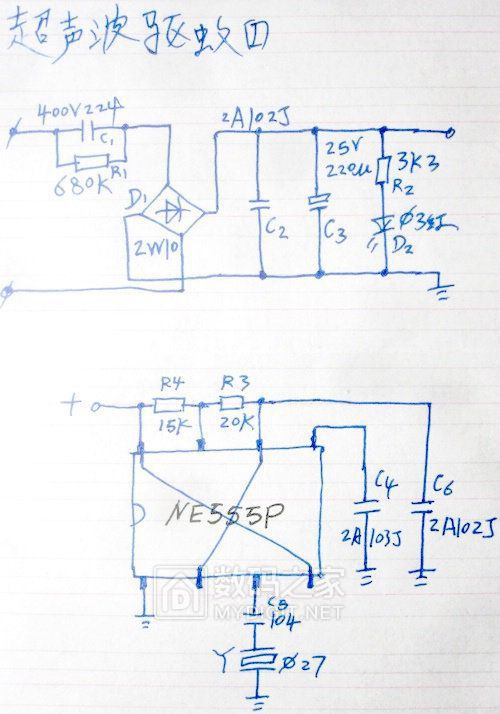 超声波驱蚊
400V224
C1
R1
680K
D1
2W10
2A102J
C2
25V
220u
C3
3K3
R2
Ø3红
D2
R4
15K
R3
20K
+
NE555P
C4
2A103J
C6
2A102J
C5
104
Y
Ø27
数码之家
MYDIGIT.NET